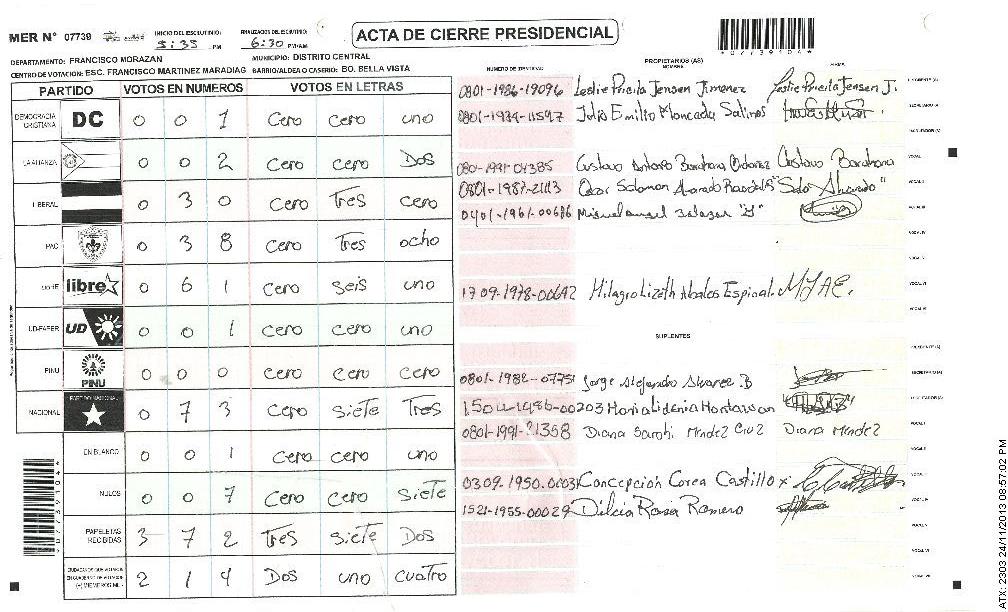 MER N° 07739
INICIO DEL ESCRUTINIO: 5:35 PM
FINALIZACION DEL ESCRUTINIO: 6:30 PM/AM
ACTA DE CIERRE PRESIDENCIAL
07739104
DEPARTAMENTO: FRANCISCO MORAZAN
MUNICIPIO: DISTRITO CENTRAL
CENTRO DE VOTACION: ESC. FRANCISCO MARTINEZ MARADIAG BARRIO/ALDEA O CASERIO: BO. BELLA VISTA
PARTIDO VOTOS EN NUMEROS VOTOS EN LETRAS
DEMOCRACIA CRISTIANA DC 0 0 1 Cero cero uno
LA ALIANZA 0 0 2 Cero cero Dos
LIBERAL 0 3 0 Cero Tres cero
PAC 0 3 8 Cero Tres ocho
LIBRE libre 0 6 1 Cero seis uno
UD-FAPER UD 0 0 1 Cero cero uno
PINU PINU 0 0 0 Cero cero cero
NACIONAL PARTIDO NACIONAL 0 7 3 Cero siete Tres
EN BLANCO 0 0 1 Cero cero uno
NULOS 0 0 7 Cero cero siete
PAPELETAS RECIBIDAS 3 7 2 Tres siete Dos
CIUDADANOS QUE VOTARON 2 1 4 Dos uno cuatro
07739104
NUMERO DE IDENTIDAD PROPIETARIOS (AS) NOMBRE FIRMA
0801-1986-19096 Leslie Pricila Jensen Jimenez Leslie Pricila Jensen J.
Julio Emilio Moncada Salinas
Gustavo Antonio Barahona Gustavo Barahona
0801-1987-21113 Oscar Salomon
0401-1961-00686 Miguel angel Salazar
1709-1978-00642 Milagro Lizeth Abalos Espinal. MJAE.
SUPLENTES
Jorge Alejandro Alvarez B
Maria Lidenia
Diana Sarahi Mendez Cruz Diana Mendez
Concepcion Corea Castillo
1521-1955-00029 Dilcia Rosa Romero
ATX: 2303 24/11/2013 08:57:02 PM